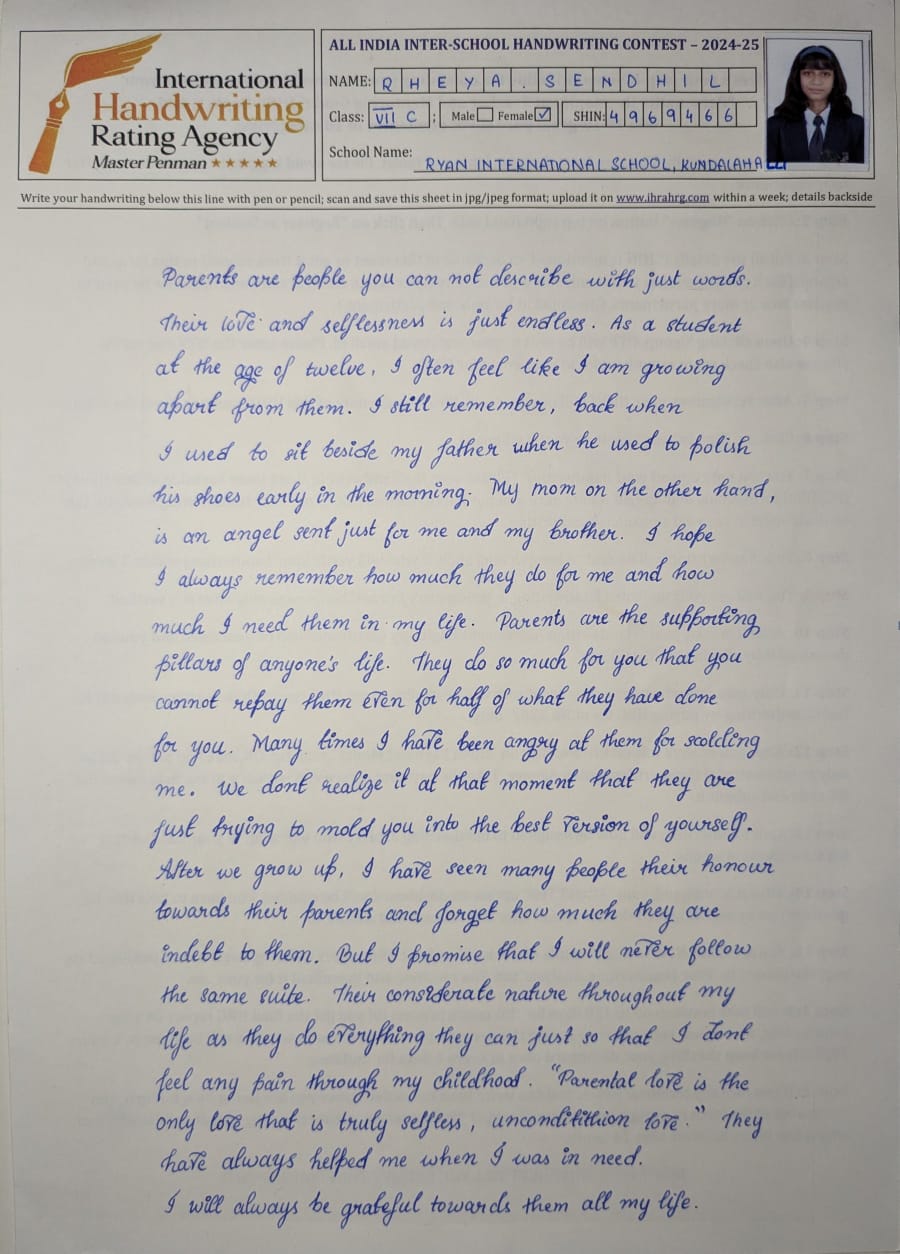 International
Handwriting
Rating Agency
Master Penman ★★★★★
ALL INDIA INTER-SCHOOL HANDWRITING CONTEST – 2024-25
NAME: RHEYA. SENDHIL
Class: VII C ; Male Female ☑ SHIN: 4969466
School Name: RYAN INTERNATIONAL SCHOOL, KUNDALAHALLI
Write your handwriting below this line with pen or pencil; scan and save this sheet in jpg/jpeg format; upload it on www.ihrahrg.com within a week; details backside
Parents are people you can not describe with just words.
Their love and selflessness is just endless. As a student
at the age of twelve, I often feel like I am growing
apart from them. I still remember, back when
I used to sit beside my father when he used to polish
his shoes early in the morning. My mom on the other hand,
is an angel sent just for me and my brother. I hope
I always remember how much they do for me and how
much I need them in my life. Parents are the supporting
pillars of anyone's life. They do so much for you that you
cannot repay them even for half of what they have done
for you. Many times I have been angry at them for scolding
me. We dont realize it at that moment that they are
just trying to mold you into the best version of yourself.
After we grow up, I have seen many people their honour
towards their parents and forget how much they are
indebt to them. But I promise that I will never follow
the same suite. Their considerate nature throughout my
life as they do everything they can just so that I dont
feel any pain through my childhood. "Parental love is the
only love that is truly selfless, unconditithion love." They
have always helped me when I was in need.
I will always be grateful towards them all my life.